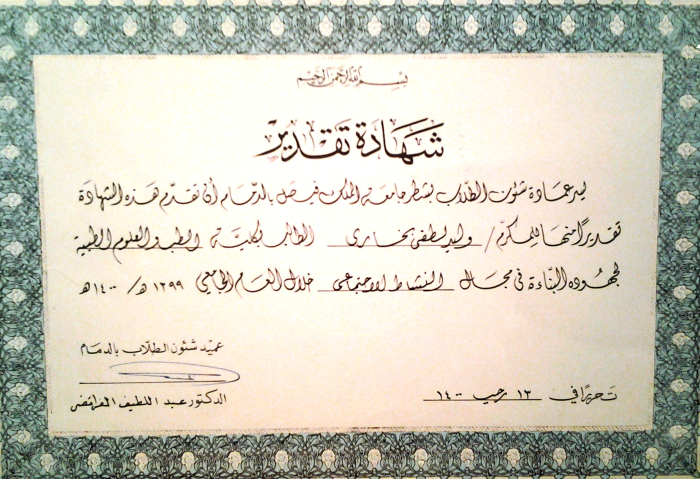 بسم الله الرحمن الرحيم
شهادة تقدير
يسر عمادة شئون الطلاب بشطر جامعة الملك فيصل بالدمام أن تقدم هذه الشهادة
تقديراً منها للمكرم / وليد لطفي بخاري الطالب بكلية الطب والعلوم الطبية
لجهوده البناءة في مجال النشاط الاجتماعي خلال العام الجامعي ١٣٩٩ هـ / ١٤٠٠ هـ
عميد شئون الطلاب بالدمام
الدكتور عبد اللطيف
تحريراً في ١٣ رجب ١٤٠٠